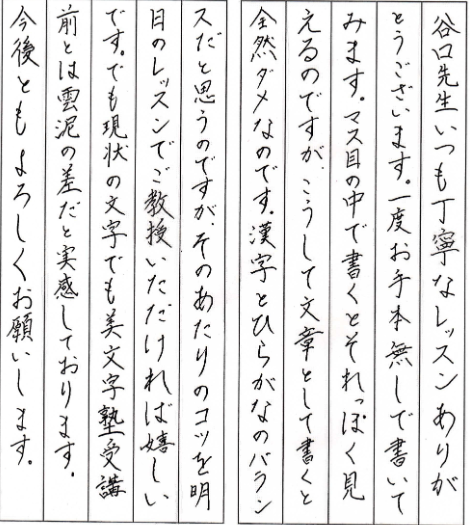 谷口先生いつも丁寧なレッスンありが
とうございます。一度お手本無しで書いて
みます。マス目の中で書くとそれっぽく見
えるのですが、こうして文章として書くと
全然ダメなのです。漢字とひらがなのバラン
スだと思うのですが、そのあたりのコツを明
日のレッスンでご教授いただければ嬉しい
です。でも現状の文字でも美文字塾受講
前とは雲泥の差だと実感しております。
今後ともよろしくお願いします。